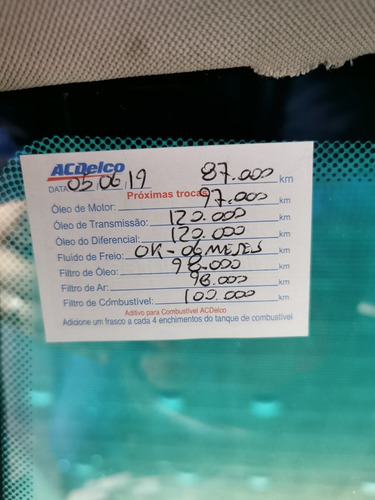 ACDelco
DATA 05.06.19 87.000 km
Próximas trocas
Óleo de Motor: 97.000 km
Óleo de Transmissão: 120.000 km
Óleo do Diferencial: 120.000 km
Fluído de Freio: OK - 06 MESES
Filtro de Óleo: 98.000 km
Filtro de Ar: 98.000 km
Filtro de Combustível: 100.000 km
Aditivo para Combustível ACDelco
Adicione um frasco a cada 4 enchimentos do tanque de combustível